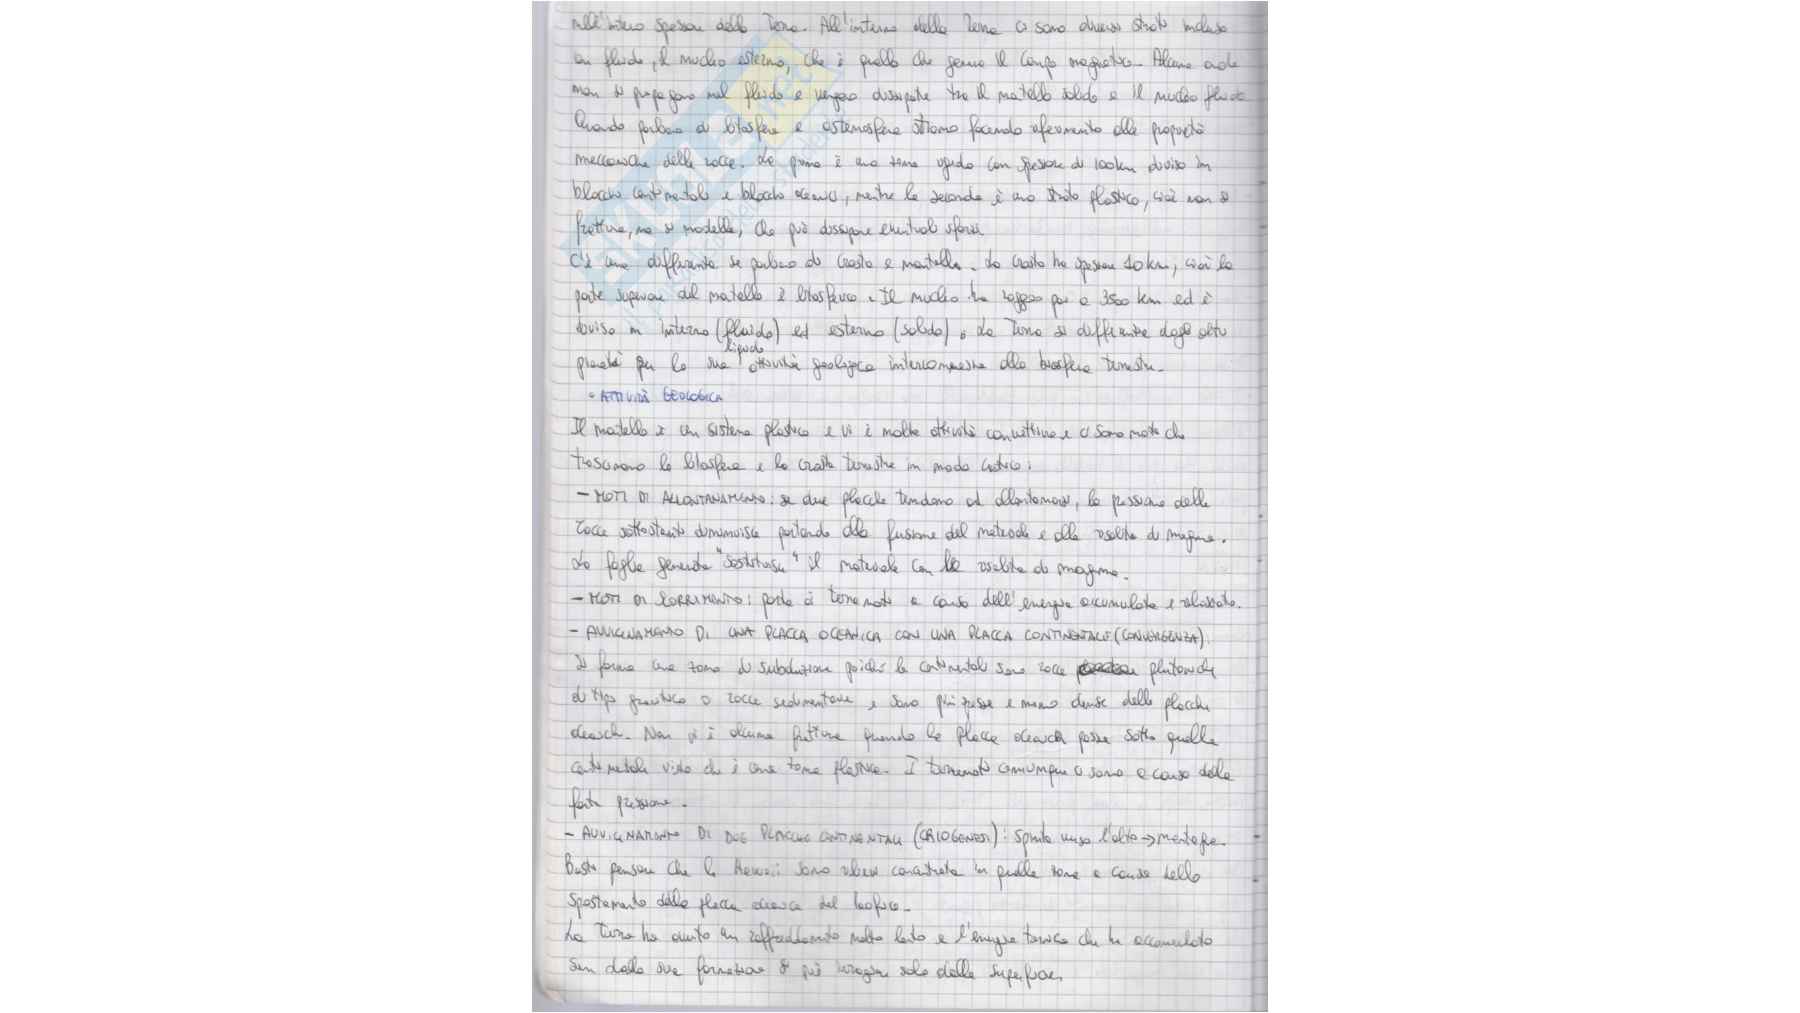 nell'intero spessore della Terra. All'interno della Terra ci sono diversi strati incluso
un fluido, il nucleo esterno, che è quello che genera il campo magnetico. Alcune onde
non si propagano nel fluido e vengono dissipate tra il mantello solido e il nucleo fluido
Quando parliamo di litosfera e astenosfera stiamo facendo riferimento alle proprietà
meccaniche delle rocce. La prima è una zona rigida con spessore di 100km diviso in
blocchi continentali e blocchi oceanici, mentre la seconda è uno strato plastico, cioè non si
frattura, ma si modella, che può dissipare eventuali sforzi.
C'è una differenza se parliamo di crosta e mantello. La crosta ha spessore 10km, cioè la
parte superiore del mantello è litosferica. Il nucleo ha raggio pari a 3500 km ed è
diviso in interno (fluido) ed esterno (solido). La Terra si differenzia dagli altri
liquido
pianeti per la sua attività geologica interconnessa alla biosfera terrestre.
• ATTIVITÀ GEOLOGICA
Il mantello è un sistema plastico e vi è molta attività convettiva e ci sono moti che
trascinano la litosfera e la crosta terrestre in modo
- MOTI DI ALLONTANAMENTO: se due placche tendono ad allontanarsi, la pressione delle
rocce sottostanti diminuisce portando alla fusione del materiale e alla risalita di magma.
La faglia generata "sostituisce" il materiale con la risalita di magma.
- MOTI DI SCORRIMENTO: porta a terremoti a causa dell'energia accumulata e rilasciata.
- AVVICINAMENTO DI UNA PLACCA OCEANICA CON UNA PLACCA CONTINENTALE (CONVERGENZA).
Si forma una zona di subduzione poiché le continentali sono rocce plutoniche
di tipo granitico o rocce sedimentarie e sono più spesse e meno dense delle placche
oceaniche. Non vi è alcuna frattura quando la placca oceanica passa sotto quella
continentale visto che è una zona plastica. I terremoti comunque ci sono a causa della
forte pressione.
- AVVICINAMENTO DI DUE PLACCHE CONTINENTALI (ORIOGENESI): spinta verso l'alto → montagne.
Basta pensare che le Hawaii sono rilievi in quella zona a causa dello
spostamento della placca oceanica del Pacifico.
La Terra ha avuto un raffreddamento molto lento e l'energia termica che ha accumulato
sin dalla sua formazione si può solo dalla superficie.